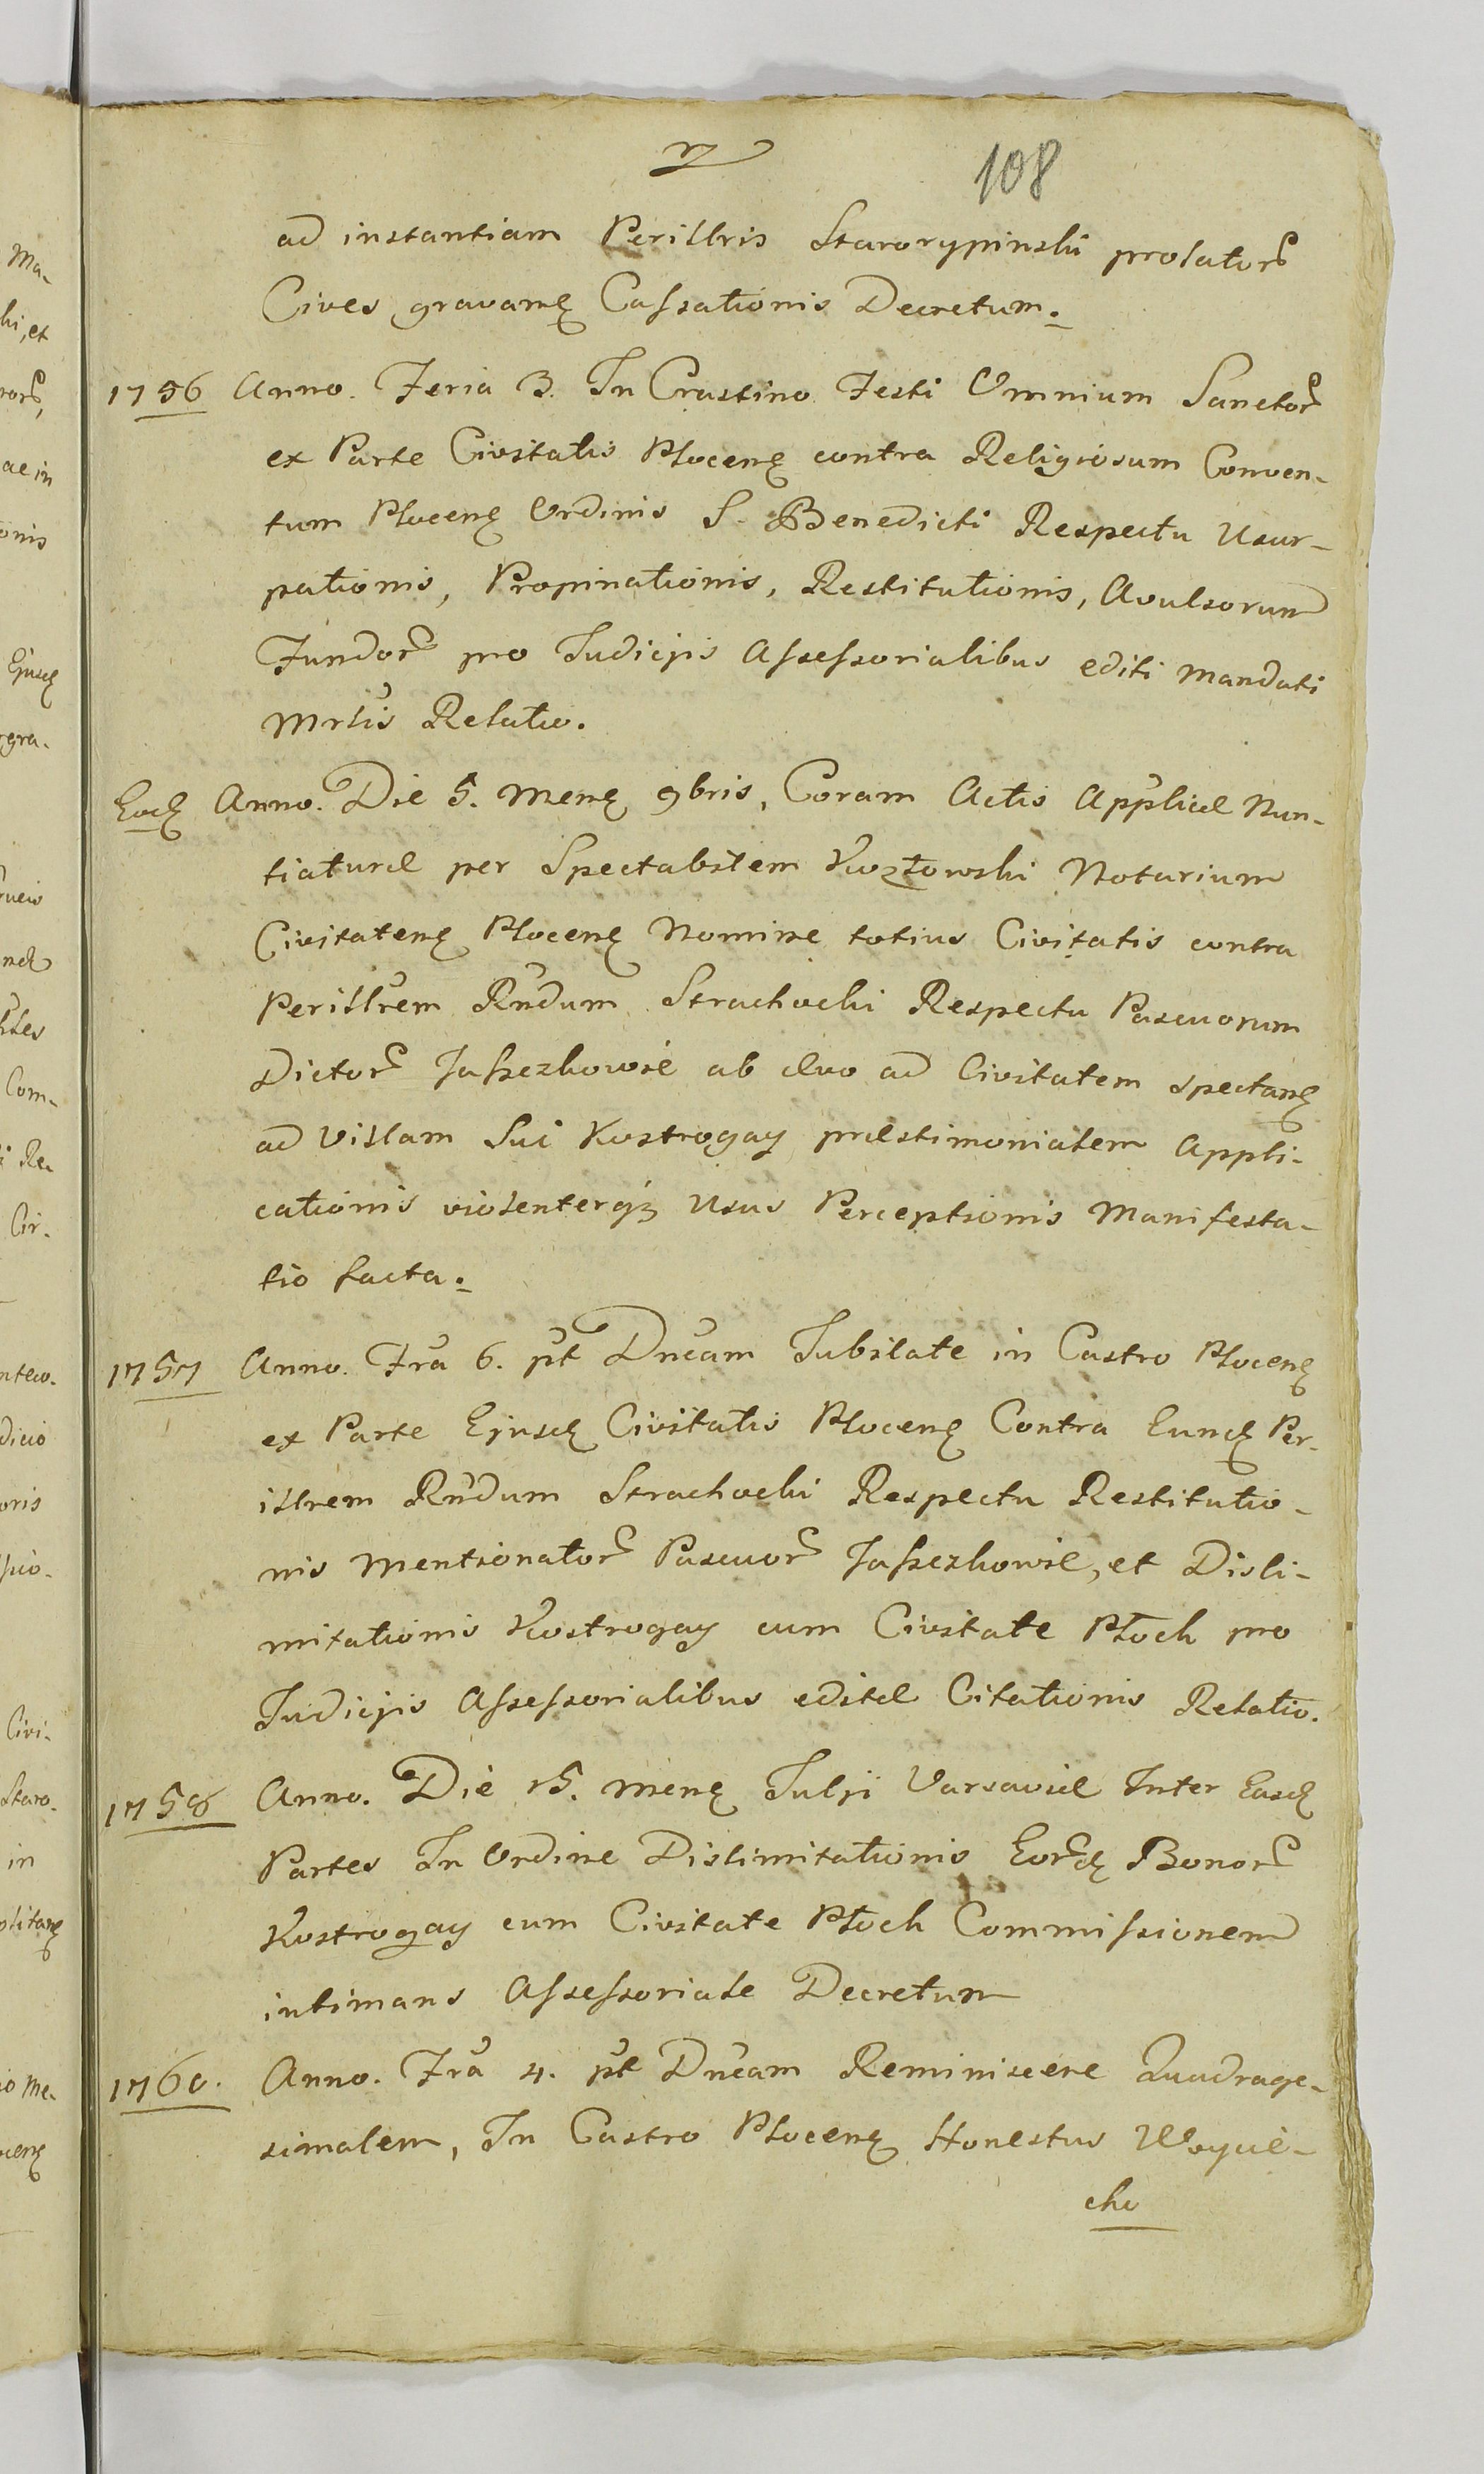 7
108
ad instantiam Perillris Starorypinski prolator
Cives gravamē Cassationis Decretum.
1756 Anno. Feria 3. In Crastino Festi Omnium Sanctor
ex Parte Civitatis Plocenē contra Religiosum Conven-
tum Plocenē Ordinis S. Benedicti Respectu Usur-
pationis, Propinationis, Restitutionis, Avulsorum
Fundor pro Judicijs Assessorialibus editi Mandati
Mrlis Relatio.
Eod Anno. Die 5. Menē 9bris, Coram Actis Applicæ Nun-
tiaturæ per Spectabilem Kozłowski Notarium
Civitatenē Plocenē Nomine totius Civitatis contra
Perillrem Rndum Strachocki Respectu Pascuorum
Dictor Jaszczkowie ab ævo ad Civitatem spectanē
ad Villam Sui Kostrogay præstimonialem Appli-
cationis violenterq3 Usus Perceptionis Manifesta-
tio facta.
1757 Anno. Fra 6. pt Dncam Jubilate in Castro Plocenē
ex Parte Ejusd Civitatis Plocenē Contra Eund Per-
illrem Rndum Strachocki Respectu Restitutio-
nis Mentionator Pascuor Jaszczkowie, et Disli-
mitationis Kostrogay cum Civitate Płock pro
Judicijs Assessorialibus editæ Citationis Relatio.
1758 Anno. Die 15. menē Julji Varsaviæ Inter Easd
Partes In Ordine Dislimitationis Eord Bonor
Kostrogay cum Civitate Płock Commissionem
intimans Assessoriale Decretum
1760. Anno. Fra 4. pt Dncam Reminiscere Quadrage-
simalem, In Castro Plocenē Honestus Woycie-
cho